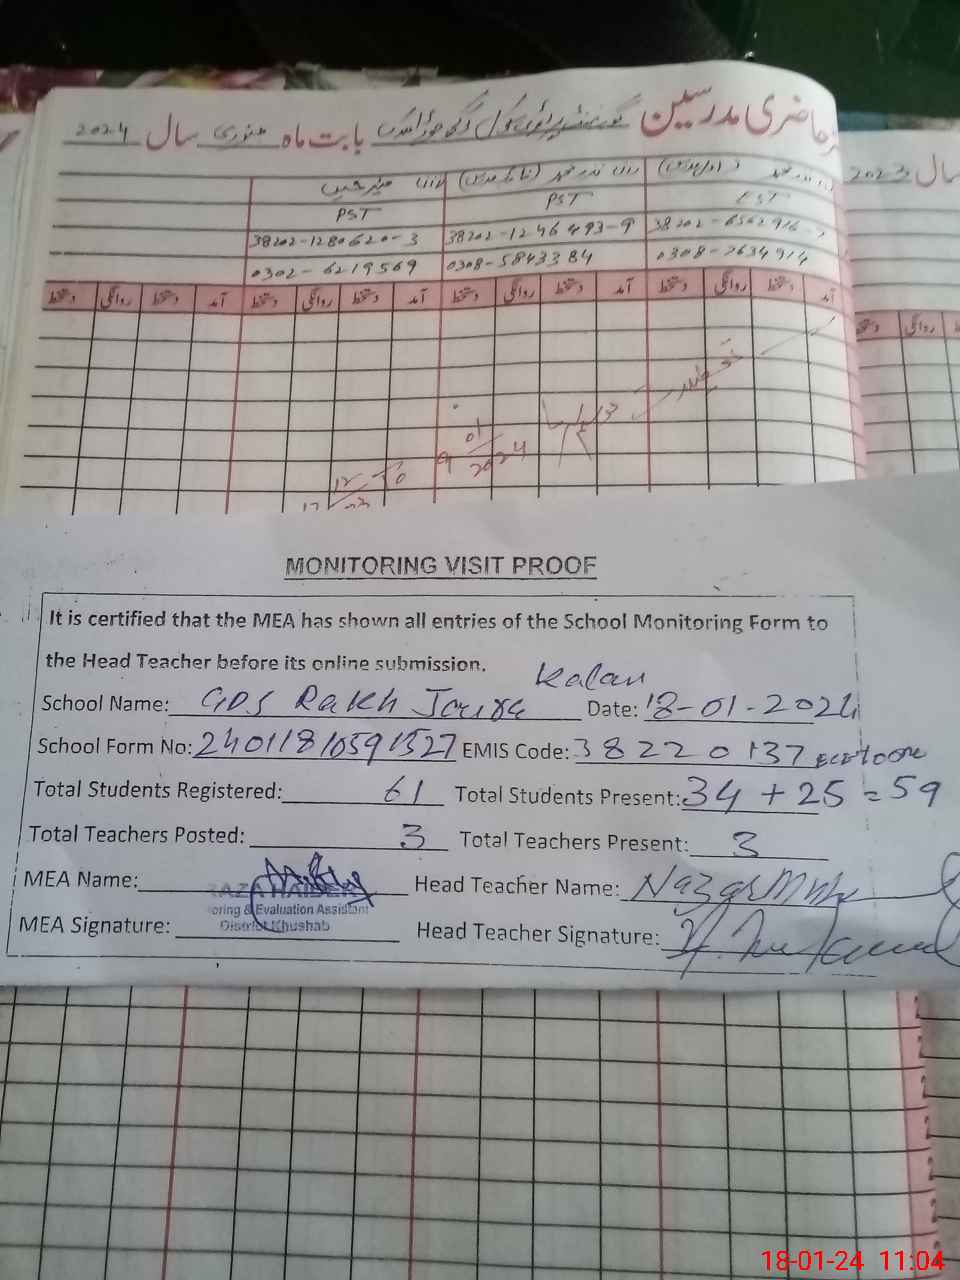 حاضری مدرسین گورنمنٹ پرائمری سکول رکھ جوڑا کلاں بابت ماہ جنوری سال 2024
سال 2023
PST PST EST
38202-1280620-3 38202-1246493-9 38202-6562916-
0302-6219569 0308-5843384 0308-7634914
آمد دستخط روانگی دستخط آمد دستخط روانگی دستخط آمد دستخط روانگی دستخط آمد دستخط روانگی دستخط
روانگی
01
9
2024
MONITORING VISIT PROOF
It is certified that the MEA has shown all entries of the School Monitoring Form to
the Head Teacher before its online submission.
Kalan
School Name: GPS Rakh Joura Date: 18-01-2024
School Form No: 24011810591527 EMIS Code: 38220137
Total Students Registered: 61 Total Students Present: 34 + 25 = 59
Total Teachers Posted: 3 Total Teachers Present: 3
MEA Name: RAZA HAIDER Head Teacher Name: Nazar
oring & Evaluation Assistant
District Khushab
MEA Signature: Head Teacher Signature:
18-01-24 11:04